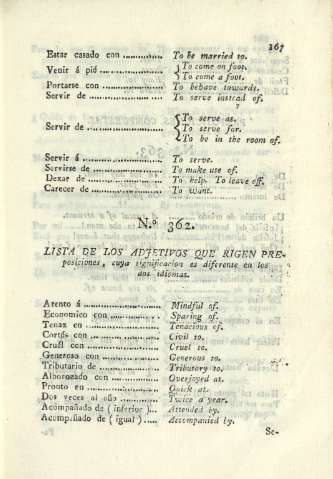 167
Estar casado con .............. To be married to.
Venir á pié .................. { To come on foot.
To come a foot.
Portarse con ................. To behave towards.
Servir de .................... To serve instead of.
Servir de .................... { To serve as.
To serve for.
To be in the room of.
Servir á ..................... To serve.
Servirse de .................. To make use of.
Dexar de ..................... To help. To leave off.
Carecer de ................... To want.
N.º 362.
LISTA DE LOS ADJETIVOS QUE RIGEN PRE-
posiciones, cuya significacion es diferente en los
dos idiomas.
Atento á ..................... Mindful of.
Economico con ................ Sparing of.
Tenaz en ..................... Tenacious of.
Cortés con ................... Civil to.
Cruel con .................... Cruel to.
Generoso con ................. Generous to.
Tributario de ................ Tributary to.
Alborozado con ............... Overjoyed at.
Pronto en .................... Quick at.
Dos veces al año ............. Twice a year.
Acompañado de ( inferior )... Attended by.
Acompañado de ( igual )..... Accompanied by.
Se-